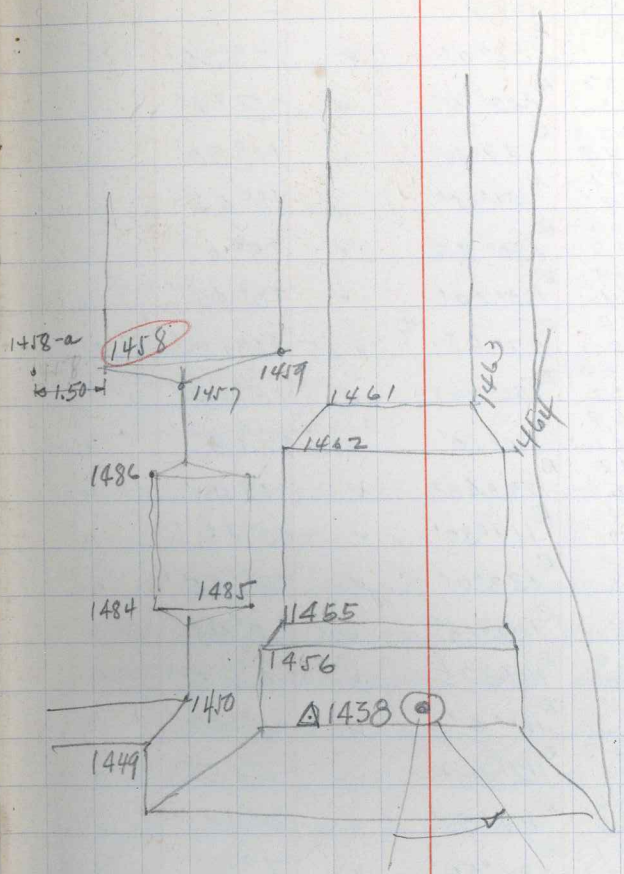 1463
1458-a
1458
1459
1.50
1457
1461
1464
1462
1486
1485
1484
1455
1456
1450
△1438
1449